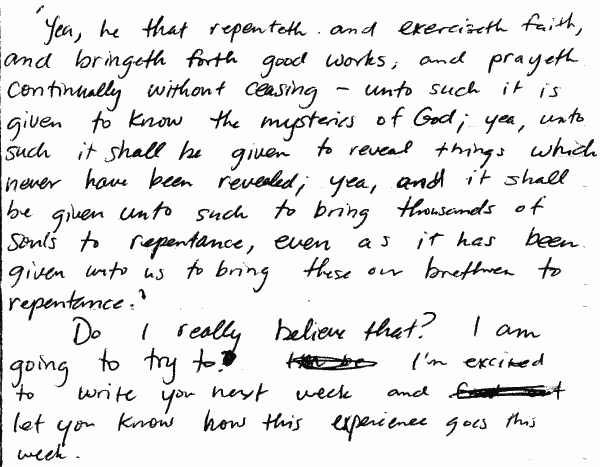 'Yea, he that repenteth and exerciseth faith,
and bringeth forth good works, and prayeth
continually without ceasing – unto such it is
given to know the mysteries of God; yea, unto
such it shall be given to reveal things which
never have been revealed; yea, and it shall
be given unto such to bring thousands of
souls to repentance, even as it has been
given unto us to bring these our brethren to
repentance.'
Do I really believe that? I am
going to try to. I'm excited
to write you next week and
let you know how this experience goes this
week.